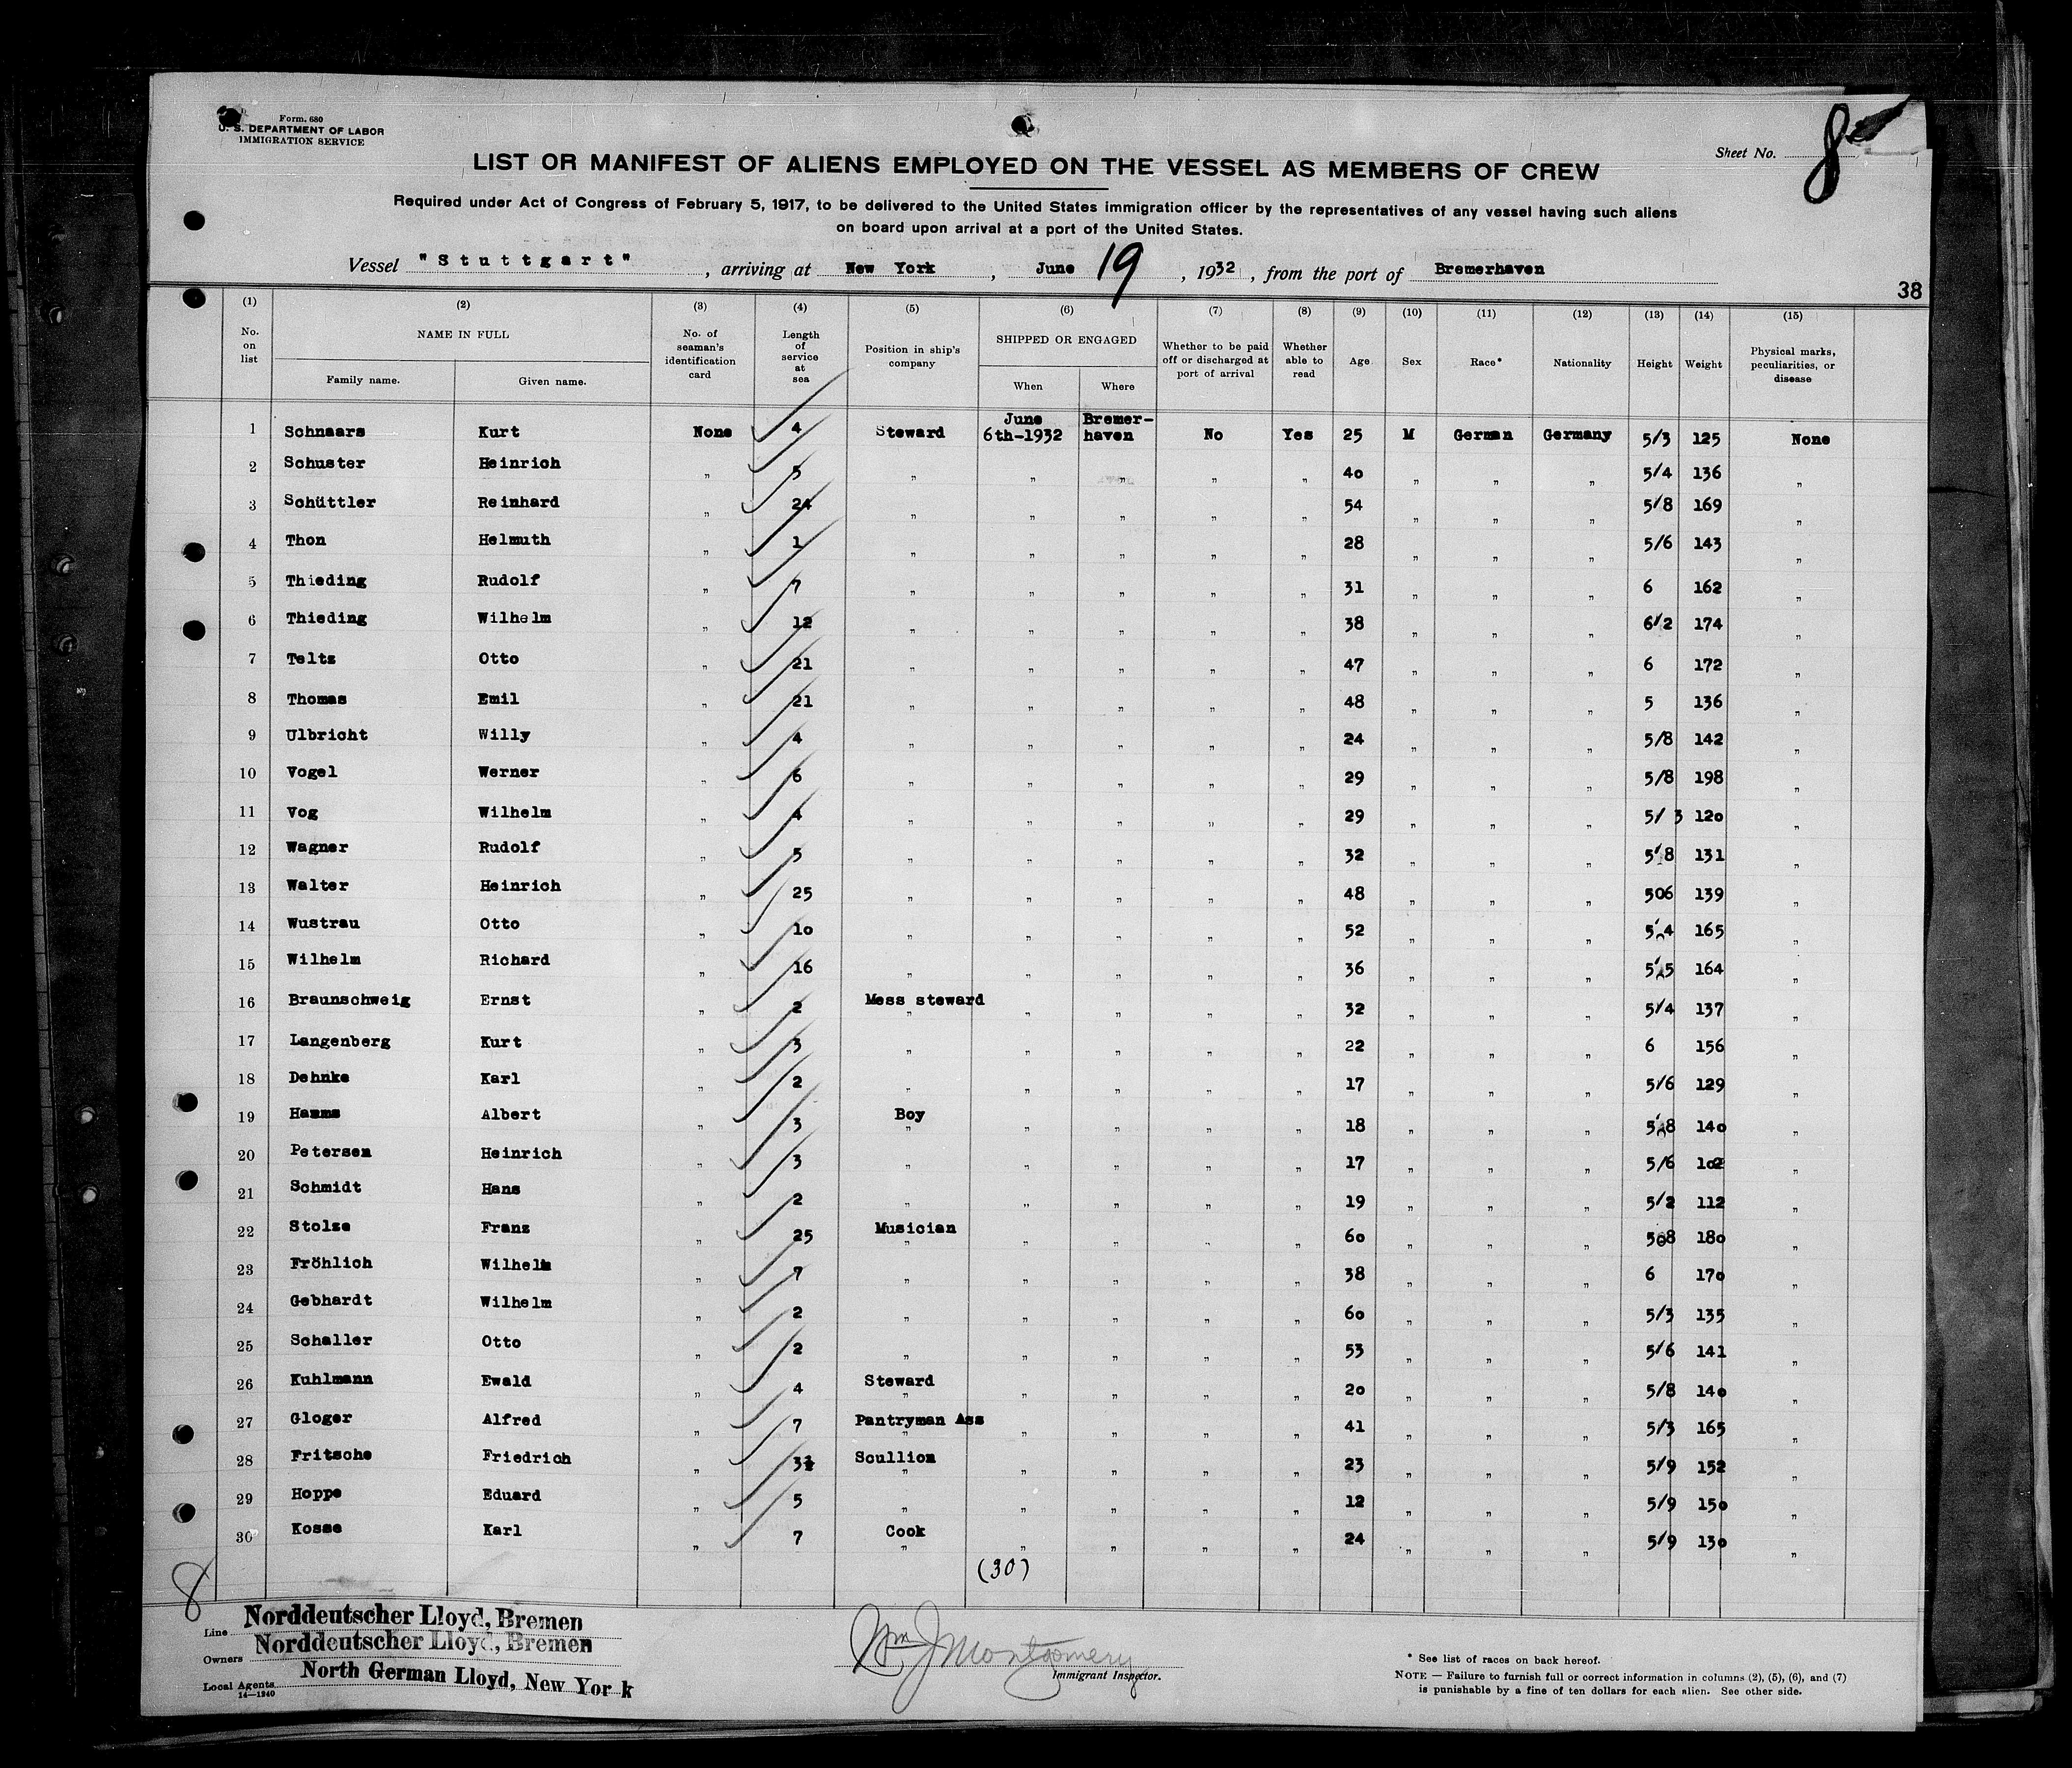 Form. 680
U. S. DEPARTMENT OF LABOR
IMMIGRATION SERVICE
Sheet No. 8
LIST OR MANIFEST OF ALIENS EMPLOYED ON THE VESSEL AS MEMBERS OF CREW
Required under Act of Congress of February 5, 1917, to be delivered to the United States immigration officer by the representatives of any vessel having such aliens
on board upon arrival at a port of the United States.
Vessel "Stuttgart", arriving at New York, June 19, 1932, from the port of Bremerhaven
38
(1) (2) (3) (4) (5) (6) (7) (8) (9) (10) (11) (12) (13) (14) (15)
No. on list NAME IN FULL Family name. Given name. No. of seaman's identification card Length of service at sea Position in ship's company SHIPPED OR ENGAGED When Where Whether to be paid off or discharged at port of arrival Whether able to read Age Sex Race* Nationality Height Weight Physical marks, peculiarities, or disease
1 Schnaars Kurt None 4 Steward June 6th-1932 Bremerhaven No Yes 25 M German Germany 5/3 125 None
2 Schuster Heinrich " 5 " " " " " 40 " " " 5/4 136 "
3 Schüttler Reinhard " 24 " " " " " 54 " " " 5/8 169 "
4 Thon Helmuth " 1 " " " " " 28 " " " 5/6 143 "
5 Thieding Rudolf " 7 " " " " " 31 " " " 6 162 "
6 Thieding Wilhelm " 12 " " " " " 38 " " " 6/2 174 "
7 Teltz Otto " 21 " " " " " 47 " " " 6 172 "
8 Thomas Emil " 21 " " " " " 48 " " " 5 136 "
9 Ulbricht Willy " 4 " " " " " 24 " " " 5/8 142 "
10 Vogel Werner " 6 " " " " " 29 " " " 5/8 198 "
11 Vog Wilhelm " 4 " " " " " 29 " " " 5/ 3 120 "
12 Wagner Rudolf " 5 " " " " " 32 " " " 5'8 131 "
13 Walter Heinrich " 25 " " " " " 48 " " " 506 139 "
14 Wustrau Otto " 10 " " " " " 52 " " " 5'4 165 "
15 Wilhelm Richard " 16 " " " " " 36 " " " 5'5 164 "
16 Braunschweig Ernst " 2 Mess steward " " " " " 32 " " " 5/4 137 "
17 Langenberg Kurt " 3 " " " " " 22 " " " 6 156 "
18 Dehnke Karl " 2 " " " " " 17 " " " 5/6 129 "
19 Hamms Albert " 3 Boy " " " " " 18 " " " 5'8 140 "
20 Petersen Heinrich " 3 " " " " " 17 " " " 5/6 102 "
21 Schmidt Hans " 2 " " " " " 19 " " " 5/2 112 "
22 Stolze Franz " 25 Musician " " " " " 60 " " " 508 180 "
23 Fröhlich Wilhelm " 7 " " " " " 38 " " " 6 170 "
24 Gebhardt Wilhelm " 2 " " " " " 60 " " " 5/3 135 "
25 Schaller Otto " 2 " " " " " 53 " " " 5/6 141 "
26 Kuhlmann Ewald " 4 Steward " " " " " 20 " " " 5/8 140 "
27 Gloger Alfred " 7 Pantryman Ass " " " " " 41 " " " 5/3 165 "
28 Fritsche Friedrich " Scullion " " " " " 23 " " " 5/9 152 "
29 Hoppe Eduard " 5 " " " " " 12 " " " 5/9 150 "
30 Kosse Karl " 7 Cook " " " " " 24 " " " 5/9 130 "
(30)
8
Line Norddeutscher Lloyd, Bremen
Owners Norddeutscher Lloyd, Bremen
Local Agents North German Lloyd, New York
14—1240
Wm J Montgomery
Immigrant Inspector.
* See list of races on back hereof.
NOTE — Failure to furnish full or correct information in columns (2), (5), (6), and (7)
is punishable by a fine of ten dollars for each alien. See other side.